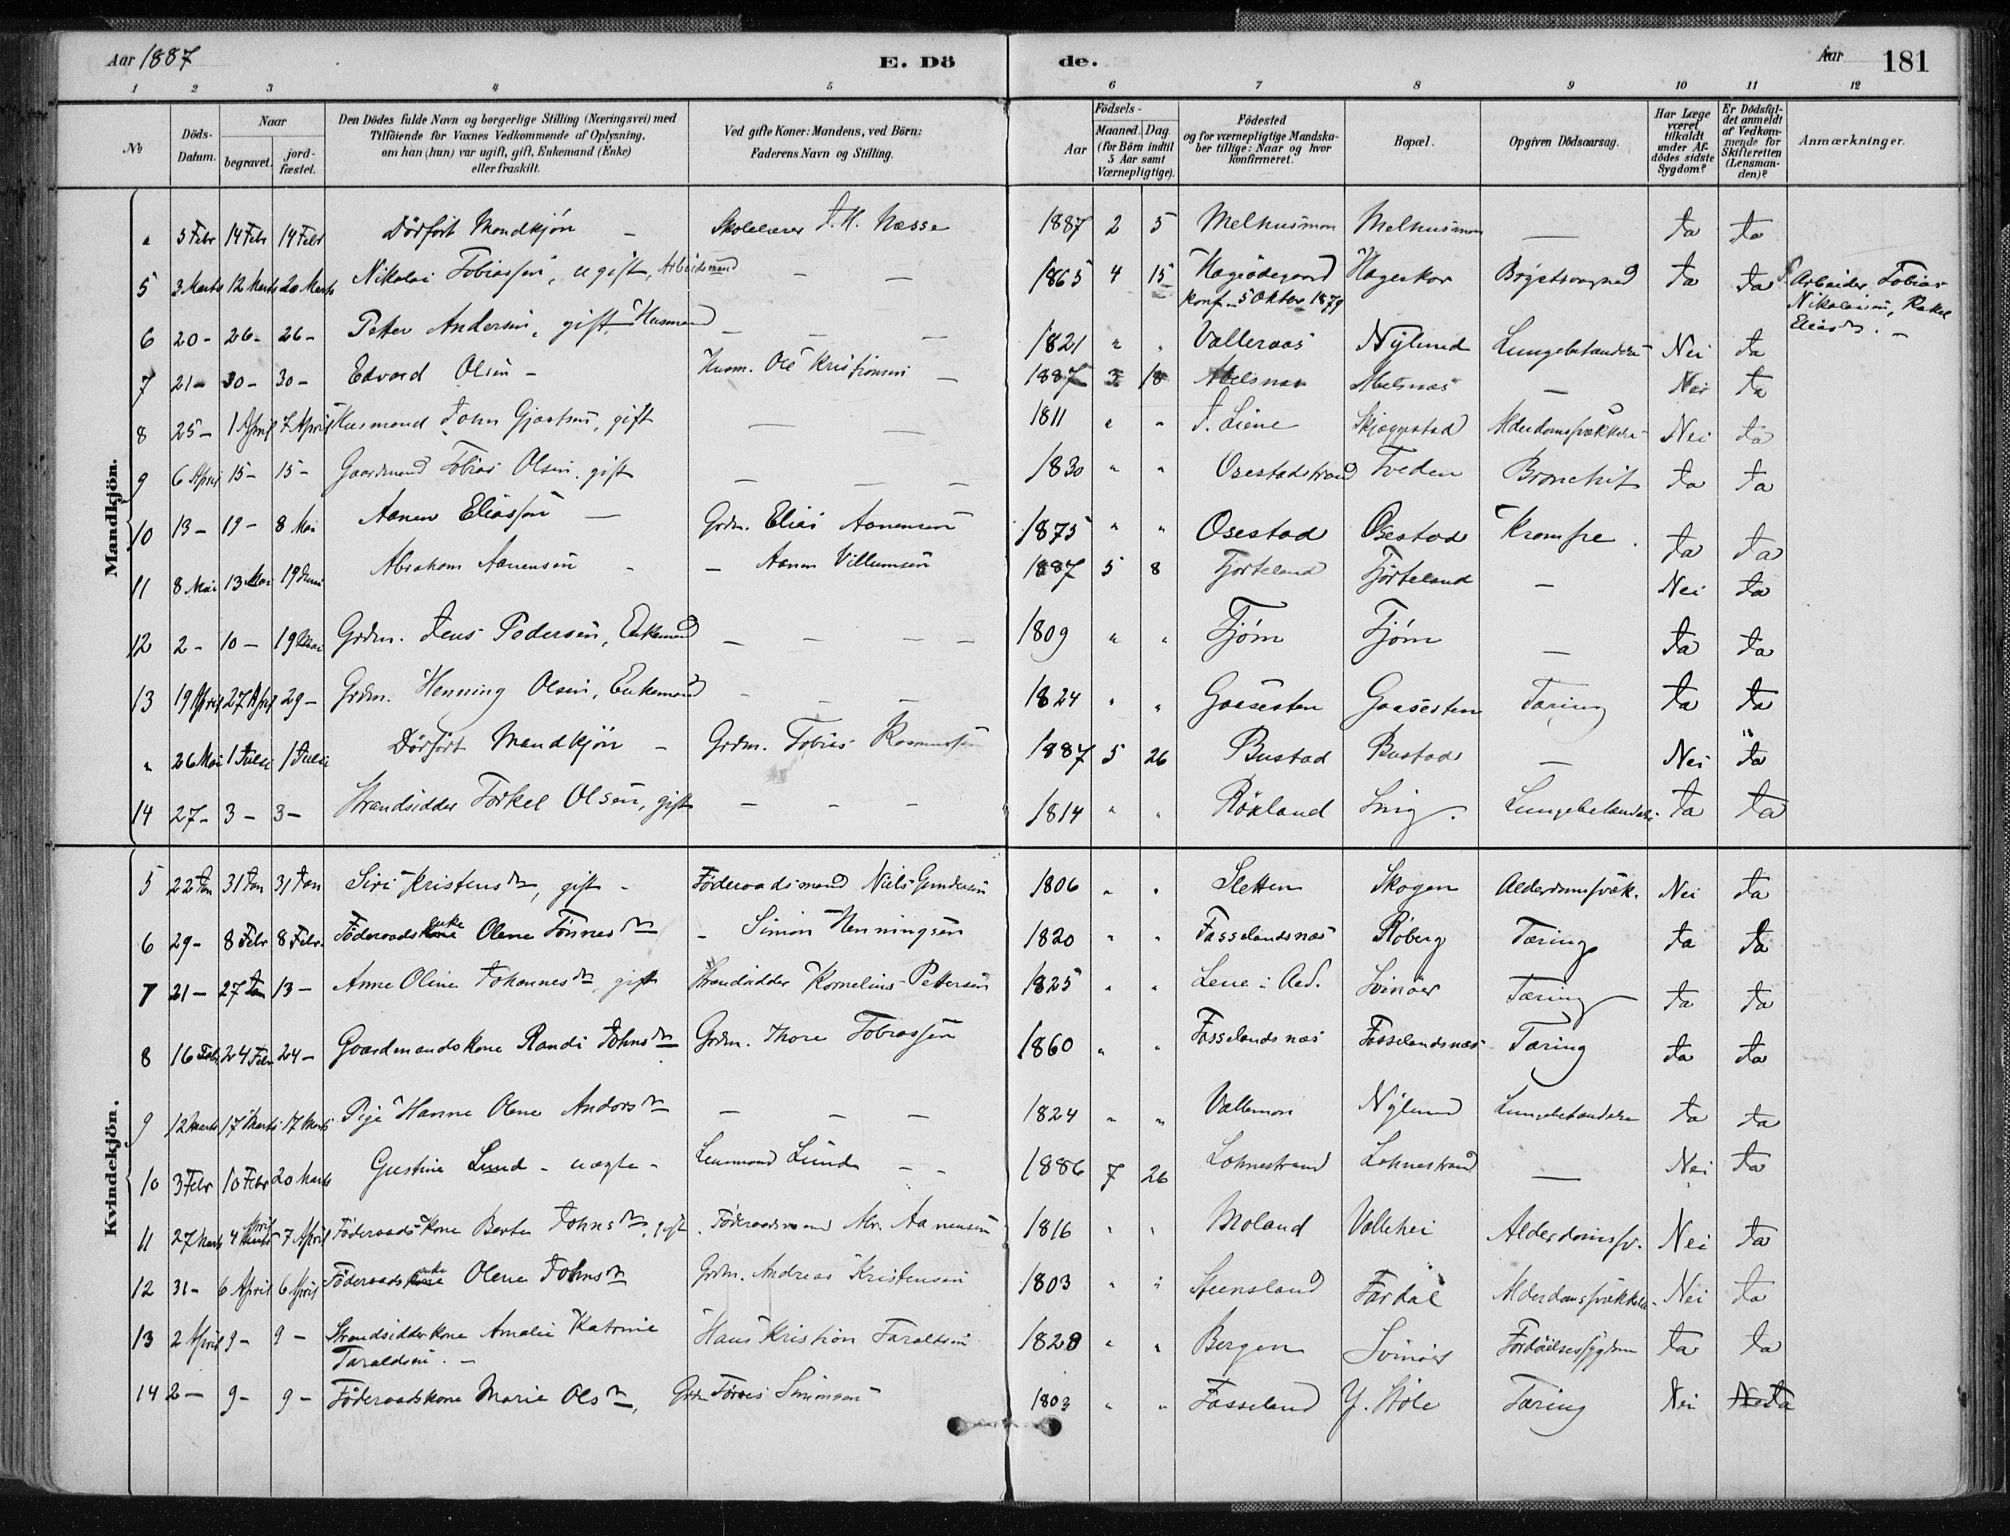 Aar 1887 E. Döde. Aar 181
1 2 3 4 5 6 7 8 9 10 11 12
№ Döds-Datum. Naar begravet. jordfæstet. Den Dödes fulde Navn og borgerlige Stilling (Næringsvei) med Tilföiende for Voxnes Vedkommende af Oplysning, om han (hun) var ugift, gift, Enkemand (Enke) eller fraskilt. Ved gifte Koner: Mandens, ved Börn: Faderens Navn og Stilling. Födsels- Aar Maaned. Dag. (for Börn indtil 5 Aar samt Værnepligtige). Födested og for værnepligtige Mandskaber tillige: Naar og hvor konfirmeret. Bopæl. Opgiven Dödsaarsag. Har Læge været tilkaldt under Afdödes sidste Sygdom? Er Dödsfaldet anmeldt af Vedkommende for Skifteretten (Lensmanden)? Anmærkninger.
Mandkjön.
" 5 Febr 14 Febr 14 Febr Dödfödt Mandkjön – Skolelærer J. H. Næsse 1887 2 5 Melhusmon Melhusmon — Ja Ja
5 3 Marts 12 Marts 20 Marts Nikolai Tobiassen, ugift, Arbeidsmand — — 1865 4 15 Hageødegaard Konf. 5 Oktbr 1879 Hageskov Ja Ja Arbeider Tobias Nikolaisen, Rakel Eliasd. –
6 20 – 26 – 26 – Peter Andersen, gift, Husmand — — — 1821 " " Valleraas Nylund Lungebetændelse Nei Ja
7 21 – 30 – 30 – Edvard Olsen – Husm. Ole Kristiansen — 1887 3 18 Abelsnæs Abelsnæs — Nei Ja
8 25 – 1 April 7 April Husmand John Gjertsen, gift — — 1811 " " Y. Liene Skjæggestad Alderdomssvækkelse Nei Ja
9 6 April 15 – 15 – Gaardmand Tobias Olsen, gift — — — 1830 " " Osestadstrand Tveden Bronchit Ja Ja
10 13 – 19 – 8 Mai Aanen Eliassen — Grdm. Elias Aanensen 1875 " " Osestad Osestad Krampe. Ja Ja
11 8 Mai 13 Mai 19 Juni Abraham Aanensen – – Aanen Villumsen 1887 5 8 Fjorteland Fjørteland – Nei Ja
12 2 – 10 – 19 Mai Grdm. Jens Pedersen, Enkemand — — — — 1809 " " Tjøm Tjøm — Ja Ja
13 19 April 27 April 29 – Grdm. Henning Olsen, Enkemand – — — 1824 " " Gaasesten Gaasesten Tæring Ja Ja
" 26 Mai 1 Juli 1 Juli Dödfödt Mandkjön – Grdm. Tobias Rasmussen 1887 5 26 Bustad Bustad — Nei Ja
14 27 – 3 – 3 – Strandsidder Torkel Olsen, gift – – – 1814 " " Röiland Lungebetændelse Ja Ja
Kvindekjön.
5 22 Jan 31 Jan 31 Jan Siri Kristensdn, gift – Föderaadsmand Niels Gundersen 1806 " " Sletten Skogen Alderdomssvæk. Nei Ja
6 29 – 8 Febr 8 Febr. Föderaadsenke Olene Tönnesdn – Simon Henningsen 1820 " " Fasselandsnæs Röberg Tæring Ja Ja
7 21 – 27 Jan 13 – Anne Oline Johannesdn, gift Strandsidder Kornelius Pettersen 1825 " " Lene i Aud. Svinöer Tæring Ja Ja
8 16 Febr 24 Febr 24 – Gaardmandskone Randi Johnsdn Grdm. Thore Tobiassen 1860 " " Fasselandsnæs Fasselandsnæs Tæring Ja Ja
9 12 Marts 17 Marts 17 Marts Pige Hanne Olene Andorsdn — — — 1824 " " Vallemon Nylund Lungebetændelse Ja Ja
10 3 Febr 10 Febr 20 Marts Gustine Lund – uægte – Lensmand Lund – – 1886 7 26 Lohnestrand Lohnestrand — Nei Ja
11 27 Marts 4 April 7 April Föderaadskone Berte Johnsdn, gift Föderaadsmand Abr. Aanensen 1816 " " Moland Vallehei Alderdomssv. Nei Ja
12 31 – 6 April 6 April Föderaadsenke Olene Johnsdn Grdm. Andreas Kristensen 1803 " " Steensland Fardal Alderdomssvækkelse Nei Ja
13 2 April 9 – 9 – Strandsidderkone Amalie Katrine Taraldsen. – Hans Kristian Taraldsen 1828 " " Bergen Svinöer Fordöielsessygdom Ja Ja
14 2 – 9 – 9 – Föderaadskone Marie Olsdn, Grdm Törres Simonsen 1803 " " Fasseland Y. Støle Tæring Nei Ja